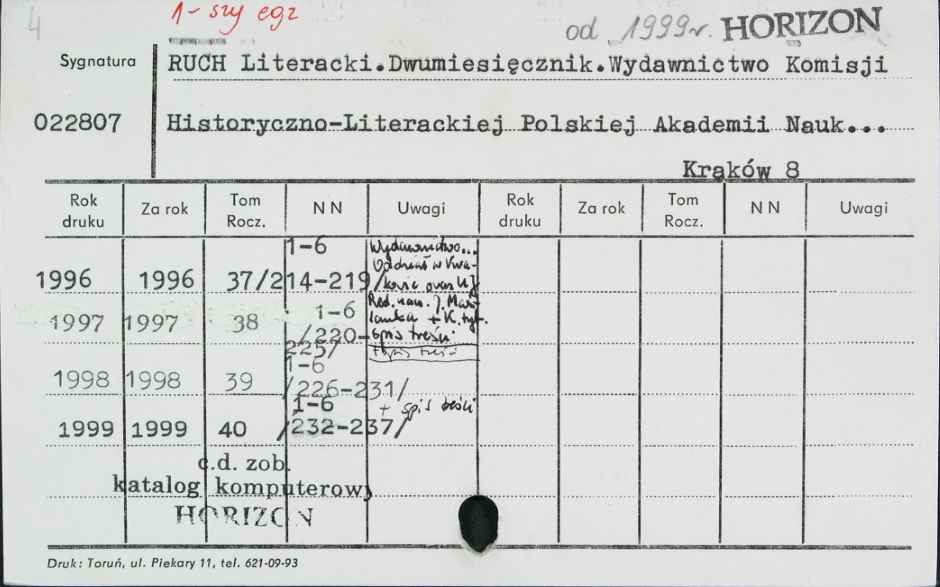 4 1-szy egz
od 1999r. HORIZON
Sygnatura RUCH Literacki.Dwumiesięcznik.Wydawnictwo Komisji
022807 Historyczno-Literackiej Polskiej Akademii Nauk...
Kraków 8
Rok druku Za rok Tom Rocz. NN Uwagi Rok druku Za rok Tom Rocz. NN Uwagi
1-6 Wydawnictwo...
Oddział w Kra-
1996 1996 37/214-219/ kowie oraz UJ
1-6 Red. nau. J. Mar
1997 1997 38 + K. tyt.
/220- spis treści
225/ + spis treści
1-6
1998 1998 39 /226-231/
1-6 + spis treści
1999 1999 40 /232-237/
c.d. zob.
katalog komputerowy
HORIZON
Druk: Toruń, ul. Piekary 11, tel. 621-09-93